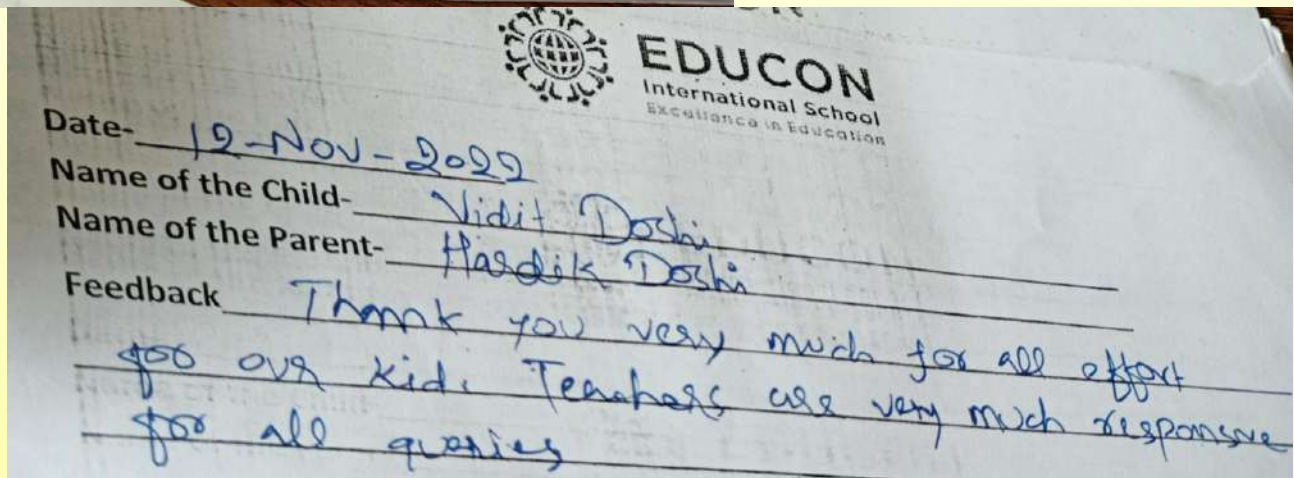 EDUCON
International School
Excellance in Education
Date- 12-Nov-2022
Name of the Child- Vidit Doshi
Name of the Parent- Hardik Doshi
Feedback Thank you very much for all effort
for our kid. Teachers are very much responsive
for all queries